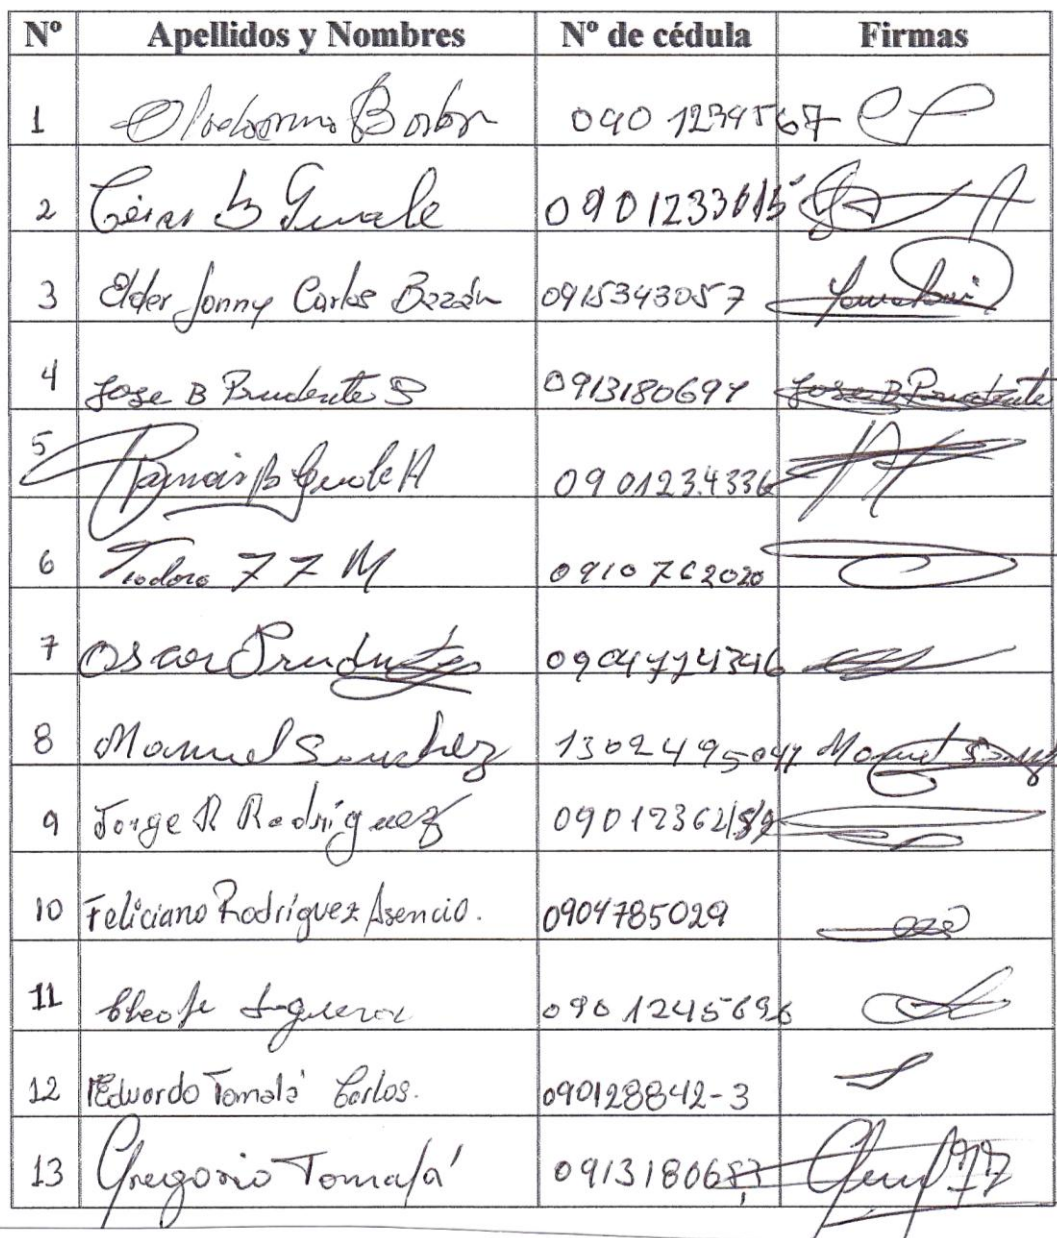 Nº Apellidos y Nombres Nº de cédula Firmas
1 Borbor 0901234567
2 César B Guale 0901233615
3 Elder Jonny Carlos Bazán 0915343057
4 Jose B Prudente S 0913180697 Jose B Prudente
5 B Guale A 0901234336
6 Teodoro 77 M 0910762020
7 Oscar Prudente 0904724346
8 Manuel Sanchez 1302495047 Manuel
9 Jorge R Rodríguez
10 Feliciano Rodríguez Asencio. 0904785029
11 Cleofe Figueroa 0901245696
12 Eduardo Tomalá Carlos. 090128842-3
13 Gregorio Tomalá 0913180683